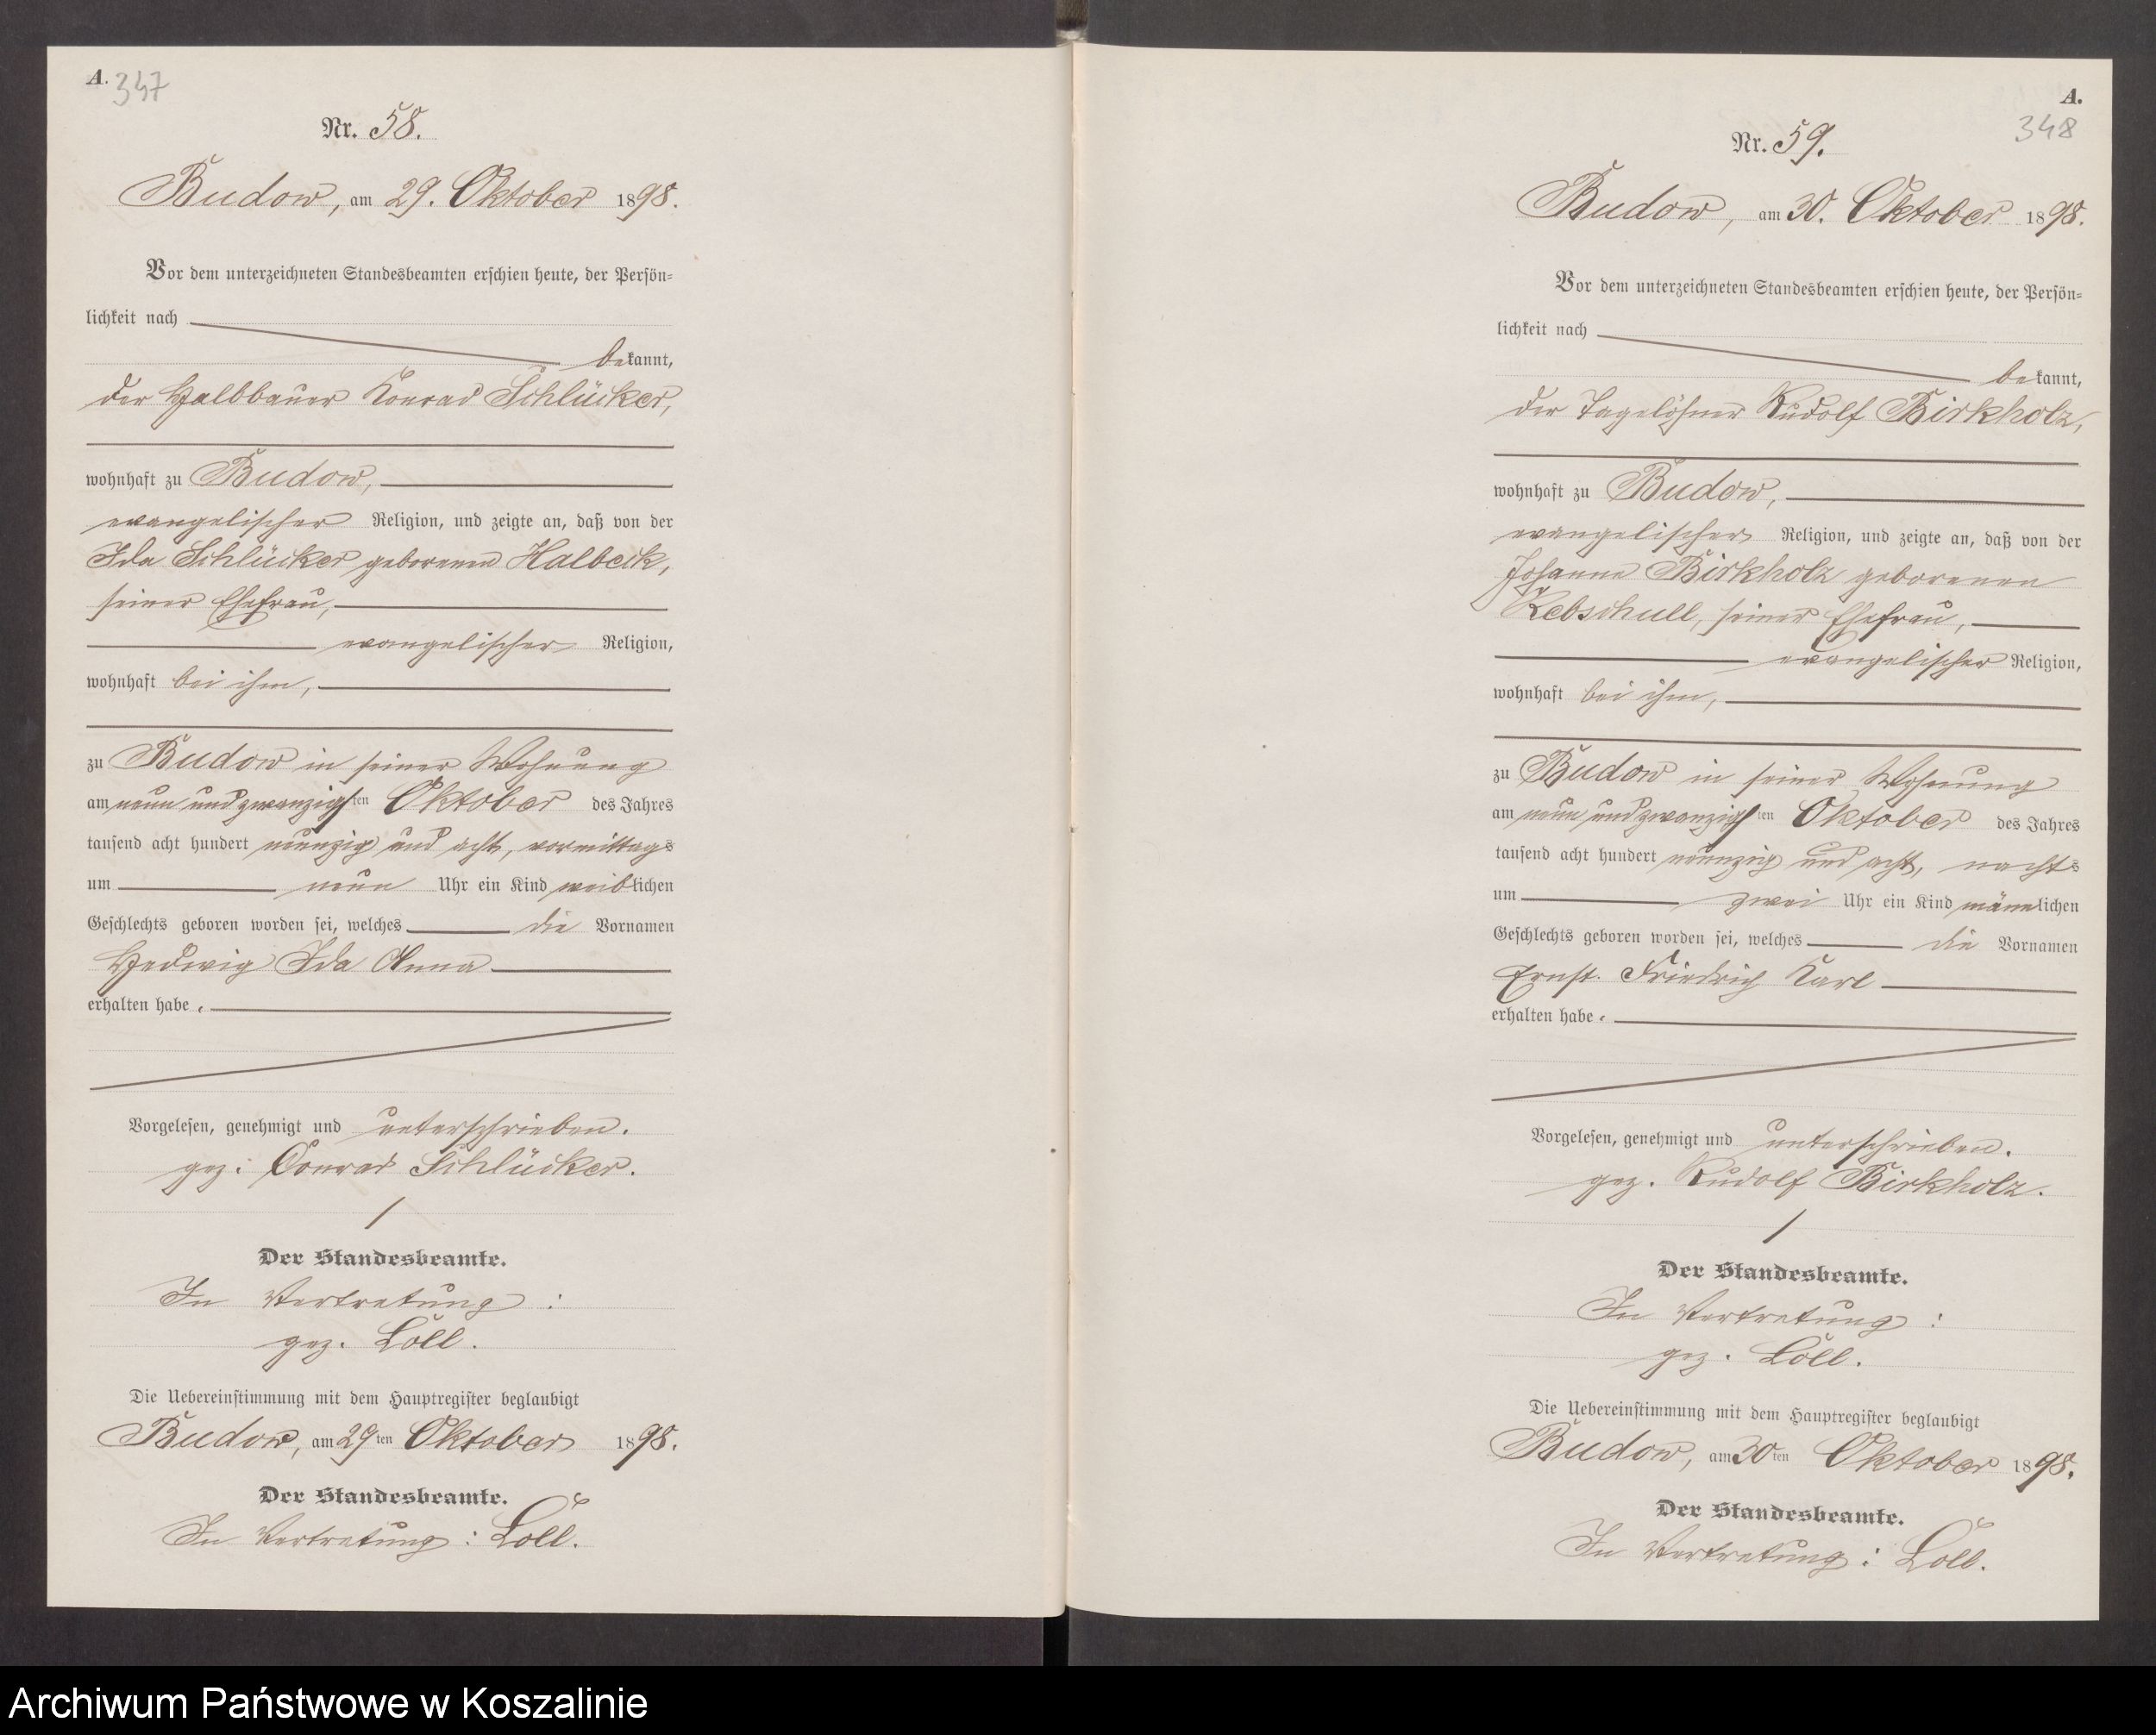 A. 347
Nr. 58.
Budow, am 29. Oktober 1898.
Vor dem unterzeichneten Standesbeamten erschien heute, der Persön-
lichkeit nach
bekannt,
der Halbbauer Konrad Schlücker,
wohnhaft zu Budow,
evangelischer Religion, und zeigte an, daß von der
Ida Schlücker geborenen Halbeck,
seiner Ehefrau,
evangelischer Religion,
wohnhaft bei ihm,
zu Budow in seiner Wohnung
am neun und zwanzigsten Oktober des Jahres
tausend acht hundert neunzig und acht, vormittags
um neun Uhr ein Kind weiblichen
Geschlechts geboren worden sei, welches die Vornamen
Hedwig Ida Anna
erhalten habe.
Vorgelesen, genehmigt und unterschrieben.
gez. Conrad Schlücker.
Der Standesbeamte.
In Vertretung:
gez. Löll.
Die Uebereinstimmung mit dem Hauptregister beglaubigt
Budow, am 29ten Oktober 1898.
Der Standesbeamte.
In Vertretung: Löll.
A.
348
Nr. 59.
Budow, am 30. Oktober 1898.
Vor dem unterzeichneten Standesbeamten erschien heute, der Persön-
lichkeit nach
bekannt,
der Tagelöhner Rudolf Birkholz,
wohnhaft zu Budow,
evangelischer Religion, und zeigte an, daß von der
Johanne Birkholz geborenen
Rebschull, seiner Ehefrau,
evangelischer Religion,
wohnhaft bei ihm,
zu Budow in seiner Wohnung
am neun und zwanzigsten Oktober des Jahres
tausend acht hundert neunzig und acht, nachts
um zwei Uhr ein Kind männlichen
Geschlechts geboren worden sei, welches die Vornamen
Ernst Friedrich Karl
erhalten habe.
Vorgelesen, genehmigt und unterschrieben.
gez. Rudolf Birkholz.
Der Standesbeamte.
In Vertretung:
gez. Löll.
Die Uebereinstimmung mit dem Hauptregister beglaubigt
Budow, am 30ten Oktober 1898.
Der Standesbeamte.
In Vertretung: Löll.
Archiwum Państwowe w Koszalinie